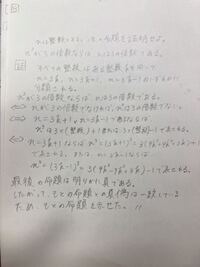 [B]
nは整数とする。次の命題を証明せよ。
n³が3の倍数ならば、nは3の倍数である。
[証]
すべての整数はある整数kを用いて
n=3k, n=3k+1, n=3k-1 のいずれかに
n³が3の倍数ならば nは3の倍数である。
⇔ nが3の倍数でなければ、n³は3の倍数でない。
⇔ n=3k+1, n=3k-1 であるならば
n³は3×(整数)+1または3×(整数)-1で表せる。
⇔ n=3k+1ならば
で表せる。または、n=3k-1ならば
n³=(3k-1)³=3(9k³-9k²+3k)-1で表せる。
最後の命題は明らかに真である。
したがって、もとの命題との真偽は一致している
ため、もとの命題を示せた。//